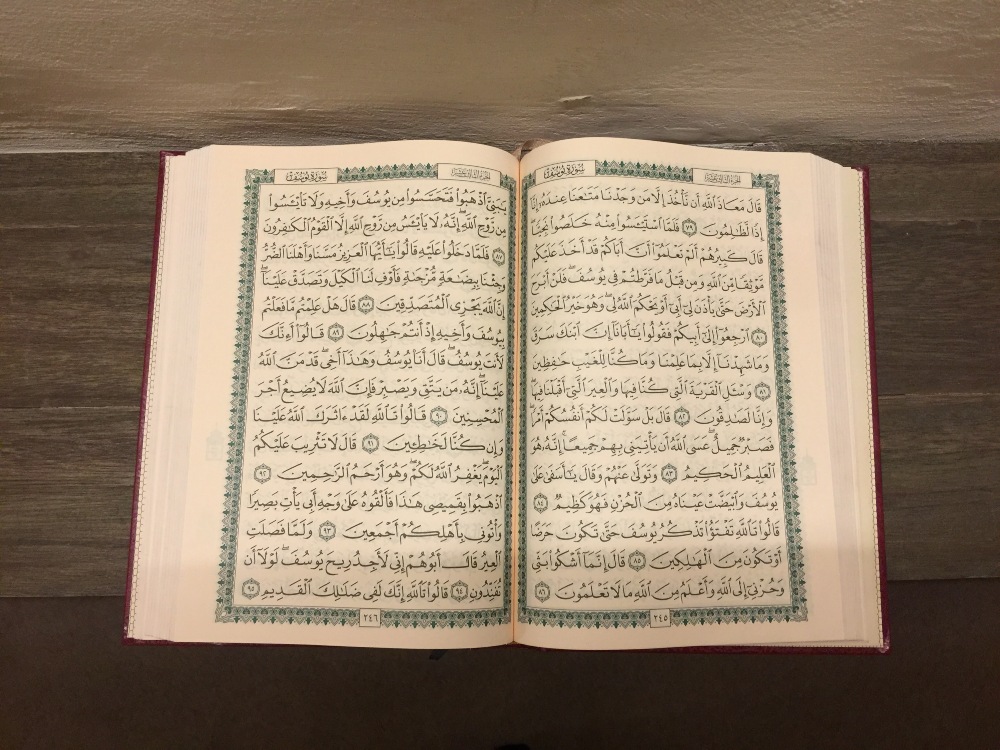 سورة يوسف
الجزء الثالث عشر
قَالَ مَعَاذَ ٱللَّهِ أَن نَّأْخُذَ إِلَّا مَن وَجَدْنَا مَتَـٰعَنَا عِندَهُۥٓ إِنَّآ
إِذًا لَّظَـٰلِمُونَ ٧٩ فَلَمَّا ٱسْتَيْـَٔسُوا۟ مِنْهُ خَلَصُوا۟ نَجِيًّا
قَالَ كَبِيرُهُمْ أَلَمْ تَعْلَمُوٓا۟ أَنَّ أَبَاكُمْ قَدْ أَخَذَ عَلَيْكُم
مَّوْثِقًا مِّنَ ٱللَّهِ وَمِن قَبْلُ مَا فَرَّطتُمْ فِى يُوسُفَ ۖ فَلَنْ أَبْرَحَ
ٱلْأَرْضَ حَتَّىٰ يَأْذَنَ لِىٓ أَبِىٓ أَوْ يَحْكُمَ ٱللَّهُ لِى ۖ وَهُوَ خَيْرُ ٱلْحَـٰكِمِينَ
٨٠ ٱرْجِعُوٓا۟ إِلَىٰٓ أَبِيكُمْ فَقُولُوا۟ يَـٰٓأَبَانَآ إِنَّ ٱبْنَكَ سَرَقَ
وَمَا شَهِدْنَآ إِلَّا بِمَا عَلِمْنَا وَمَا كُنَّا لِلْغَيْبِ حَـٰفِظِينَ
٨١ وَسْـَٔلِ ٱلْقَرْيَةَ ٱلَّتِى كُنَّا فِيهَا وَٱلْعِيرَ ٱلَّتِىٓ أَقْبَلْنَا فِيهَا ۖ
وَإِنَّا لَصَـٰدِقُونَ ٨٢ قَالَ بَلْ سَوَّلَتْ لَكُمْ أَنفُسُكُمْ أَمْرًا ۖ
فَصَبْرٌ جَمِيلٌ ۖ عَسَى ٱللَّهُ أَن يَأْتِيَنِى بِهِمْ جَمِيعًا ۚ إِنَّهُۥ هُوَ
ٱلْعَلِيمُ ٱلْحَكِيمُ ٨٣ وَتَوَلَّىٰ عَنْهُمْ وَقَالَ يَـٰٓأَسَفَىٰ عَلَىٰ
يُوسُفَ وَٱبْيَضَّتْ عَيْنَاهُ مِنَ ٱلْحُزْنِ فَهُوَ كَظِيمٌ ٨٤
قَالُوا۟ تَٱللَّهِ تَفْتَؤُا۟ تَذْكُرُ يُوسُفَ حَتَّىٰ تَكُونَ حَرَضًا
أَوْ تَكُونَ مِنَ ٱلْهَـٰلِكِينَ ٨٥ قَالَ إِنَّمَآ أَشْكُوا۟ بَثِّى
وَحُزْنِىٓ إِلَى ٱللَّهِ وَأَعْلَمُ مِنَ ٱللَّهِ مَا لَا تَعْلَمُونَ ٨٦
٢٤٥
الجزء الثالث عشر
سورة يوسف
يَـٰبَنِىَّ ٱذْهَبُوا۟ فَتَحَسَّسُوا۟ مِن يُوسُفَ وَأَخِيهِ وَلَا تَا۟يْـَٔسُوا۟
مِن رَّوْحِ ٱللَّهِ ۖ إِنَّهُۥ لَا يَا۟يْـَٔسُ مِن رَّوْحِ ٱللَّهِ إِلَّا ٱلْقَوْمُ ٱلْكَـٰفِرُونَ
٨٧ فَلَمَّا دَخَلُوا۟ عَلَيْهِ قَالُوا۟ يَـٰٓأَيُّهَا ٱلْعَزِيزُ مَسَّنَا وَأَهْلَنَا ٱلضُّرُّ
وَجِئْنَا بِبِضَـٰعَةٍ مُّزْجَىٰةٍ فَأَوْفِ لَنَا ٱلْكَيْلَ وَتَصَدَّقْ عَلَيْنَآ ۖ
إِنَّ ٱللَّهَ يَجْزِى ٱلْمُتَصَدِّقِينَ ٨٨ قَالَ هَلْ عَلِمْتُم مَّا فَعَلْتُم
بِيُوسُفَ وَأَخِيهِ إِذْ أَنتُمْ جَـٰهِلُونَ ٨٩ قَالُوٓا۟ أَءِنَّكَ
لَأَنتَ يُوسُفُ ۖ قَالَ أَنَا۠ يُوسُفُ وَهَـٰذَآ أَخِى ۖ قَدْ مَنَّ ٱللَّهُ
عَلَيْنَآ ۖ إِنَّهُۥ مَن يَتَّقِ وَيَصْبِرْ فَإِنَّ ٱللَّهَ لَا يُضِيعُ أَجْرَ
ٱلْمُحْسِنِينَ ٩٠ قَالُوا۟ تَٱللَّهِ لَقَدْ ءَاثَرَكَ ٱللَّهُ عَلَيْنَا
وَإِن كُنَّا لَخَـٰطِـِٔينَ ٩١ قَالَ لَا تَثْرِيبَ عَلَيْكُمُ
ٱلْيَوْمَ ۖ يَغْفِرُ ٱللَّهُ لَكُمْ ۖ وَهُوَ أَرْحَمُ ٱلرَّٰحِمِينَ ٩٢
ٱذْهَبُوا۟ بِقَمِيصِى هَـٰذَا فَأَلْقُوهُ عَلَىٰ وَجْهِ أَبِى يَأْتِ بَصِيرًا
وَأْتُونِى بِأَهْلِكُمْ أَجْمَعِينَ ٩٣ وَلَمَّا فَصَلَتِ
ٱلْعِيرُ قَالَ أَبُوهُمْ إِنِّى لَأَجِدُ رِيحَ يُوسُفَ ۖ لَوْلَآ أَن
تُفَنِّدُونِ ٩٤ قَالُوا۟ تَٱللَّهِ إِنَّكَ لَفِى ضَلَـٰلِكَ ٱلْقَدِيمِ ٩٥
٢٤٦